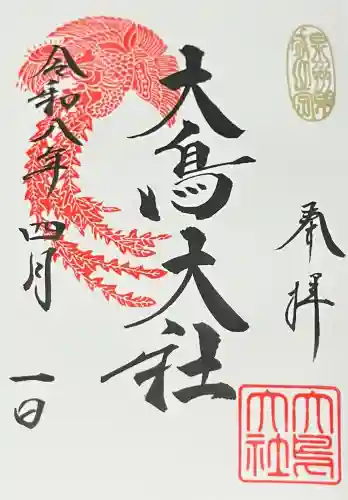 奉拝
大鳥大社
令和八年四月一日
大鳥大社